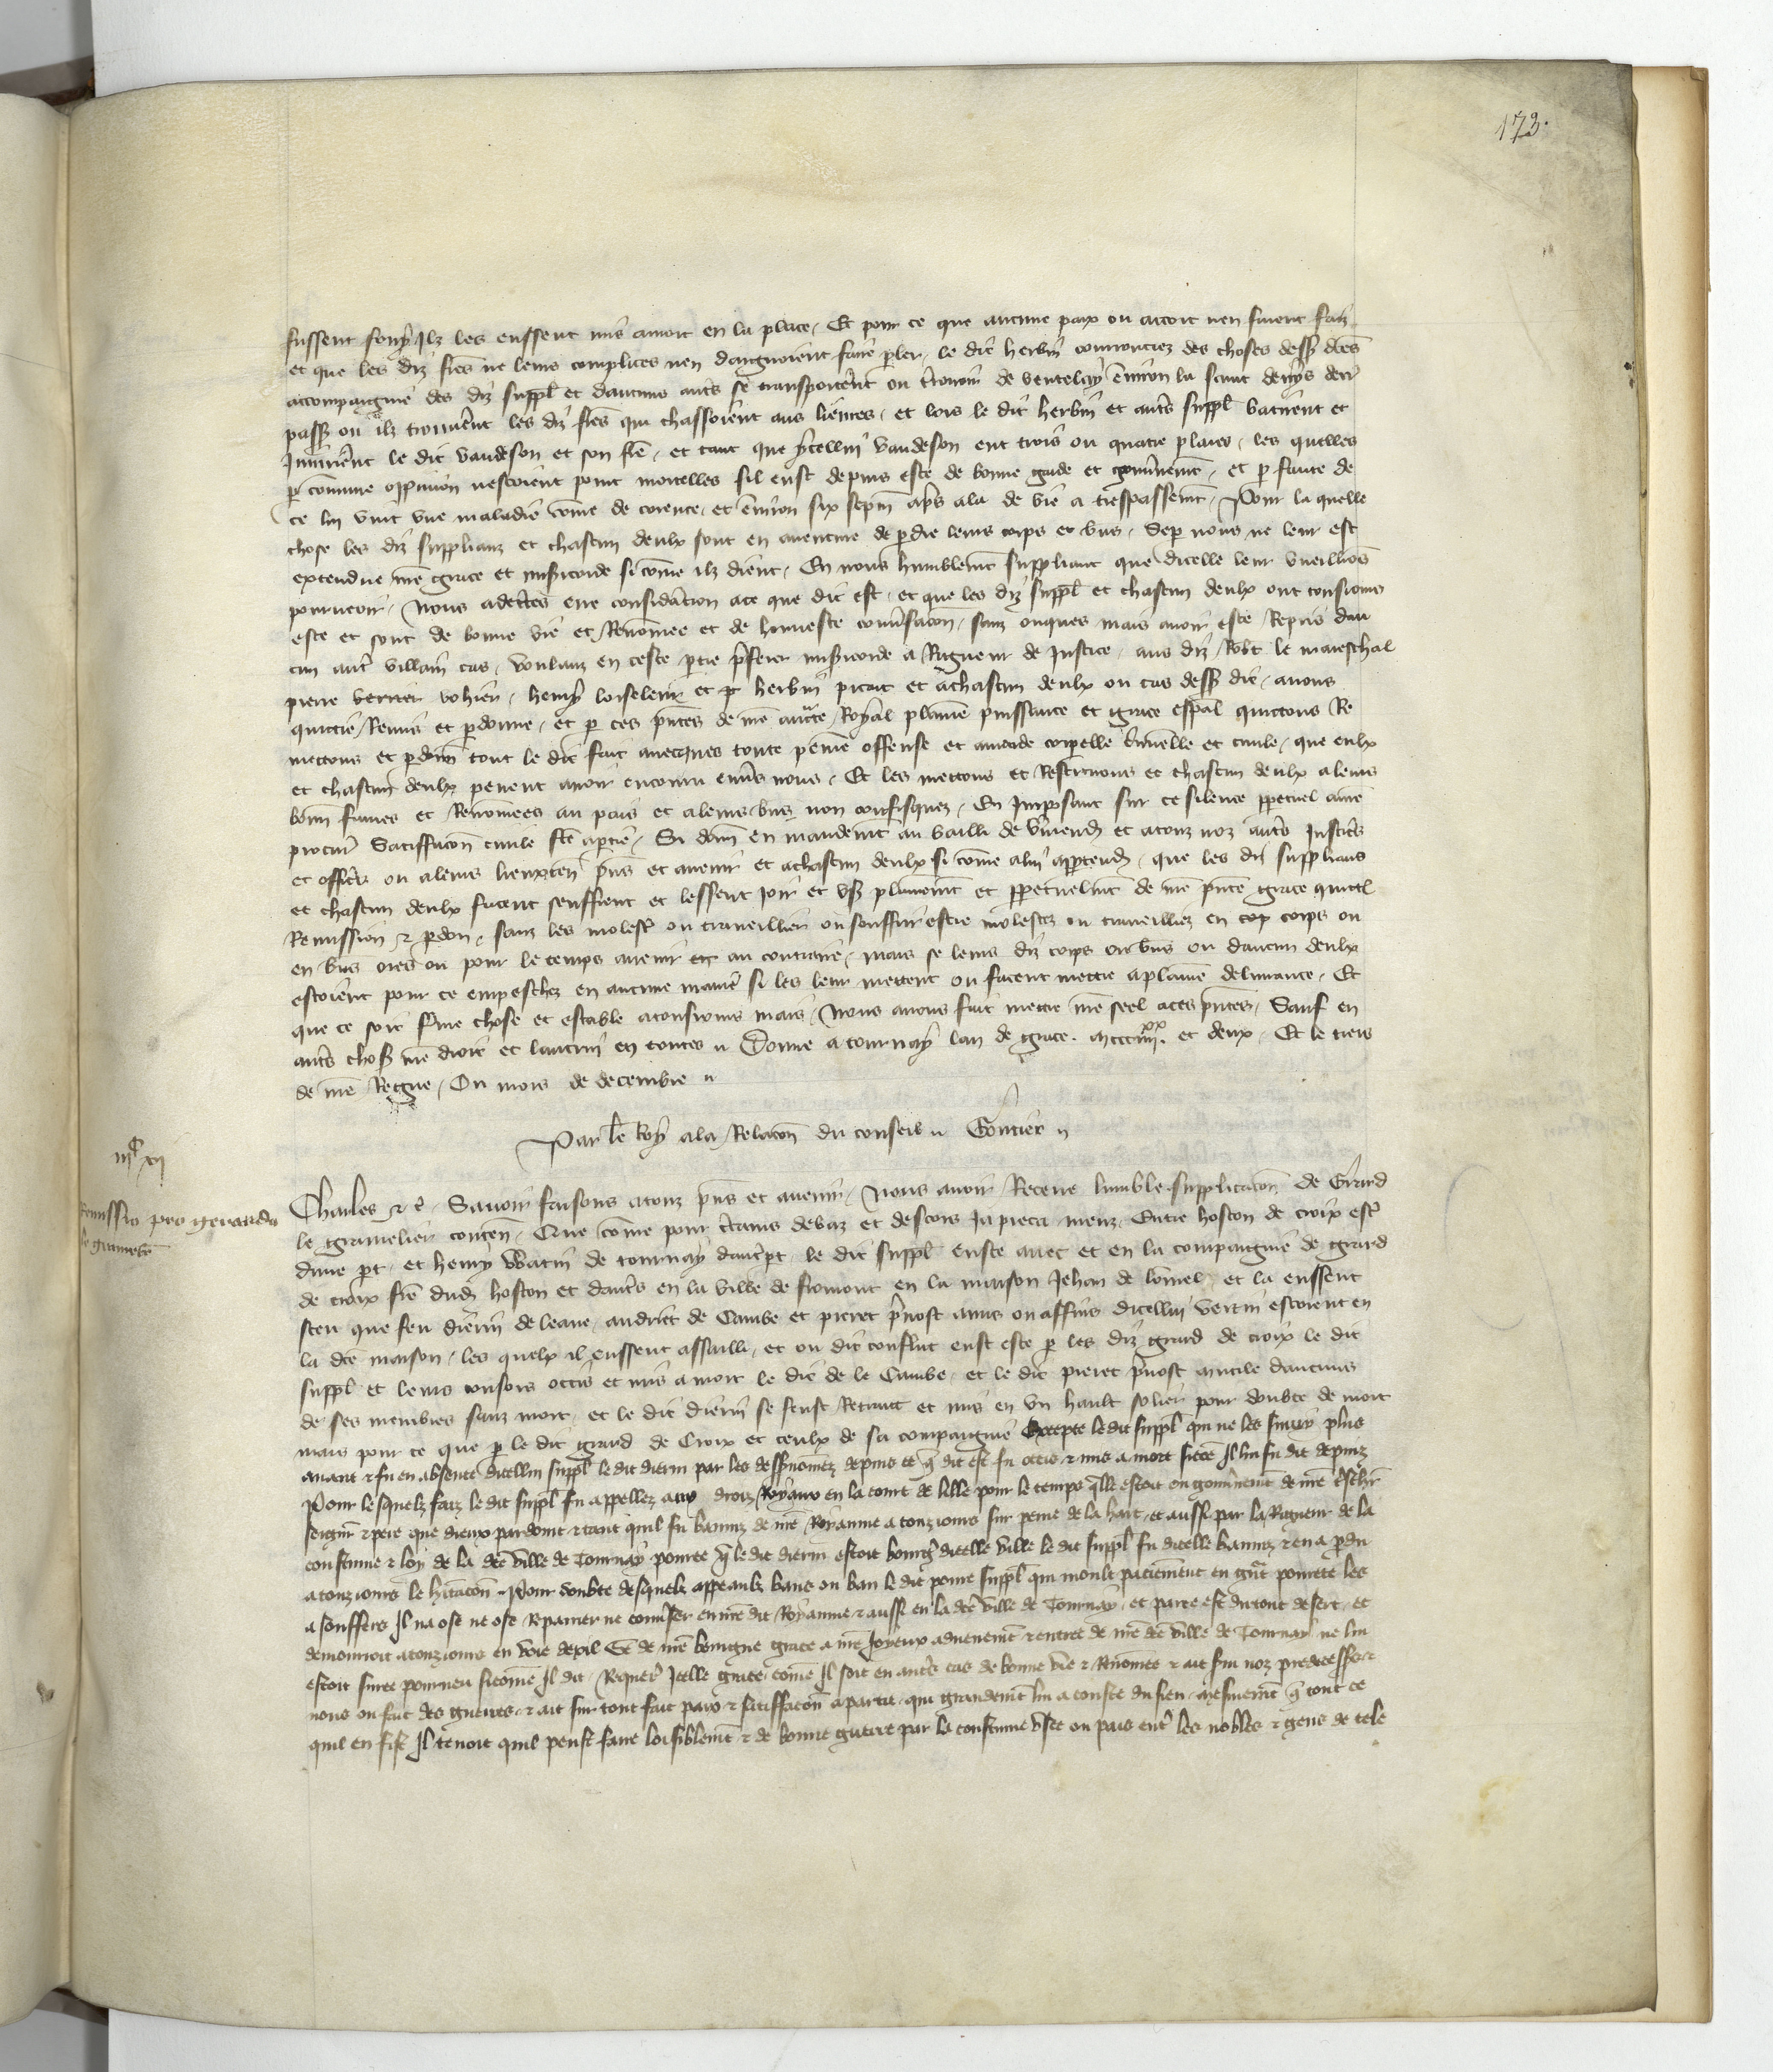 173.
fussent fouy Ilz les eussent mis amort en la place / Et pour ce que aucune paix ou accort nen furent faiz
et que les diz freres ne leurs complices nen daignoient faire parler / le dit herbin courrouciez des choses dess dces
accompaignie des diz suppl et daucuns autres se transporterent ou terouoir de ventelay environ la saint denys derr
pass ou ilz trouverent les diz freres qui chassoient aus lievres / et lors le dit herbin et autres suppl batirent et
Innirent le dit vaudeson et son fre / et tant que ycellui vaudeson eut trois ou quatre plaies / les quelles
par commune oppinion nestoient point mortelles sil eust depuis este de bonne garde et gouvernemt / et par faute de
ce lui vint une maladie comme de corence / et environ six sepm apres ala de vie a trespassemt / Pour la quelle
chose les diz supplians et chascun deulx sont en aventure de perdre leurs corps et biens / Se par nous ne leur est
extendue nre grace et misericorde si comme ilz dient / En nous humblemt suppliant que dicelle leur vueillions
pourveoir / Nous adcertes eue consideration ace que dit est / et que les diz suppl et chascun deulx ont tousiours
este et sont de bonne vie et Renommee et de honneste conversacon / sanz onques mais avoir este Repris dau
cun autre villain cas / voulanz en ceste partie preferer misericorde a Rigueur de Justice / aus diz Robt le mareschal
pierre verrier vohier / henry loiseleur et herbin picart et achascun deulx ou cas dess dit / avons
quictie Remis et pardonne / et par ces pntes de nre aucte Royal plainne puissance et grace espal quictons Re
mettons et pardonn tout le dit fait avecques toute peinne offense et amende corporelle criminelle et civile / que eulx
et chascun deulx pevent avoir encouru envers nous / Et les mettons et Restituons et chascun deulx a leurs
bonn fames et Renommees au pais et aleurs biens non confisquez / En Imposant sur ce silence perpetuel anre
procur Satiffacon civile fte aptie / Si donn en mandemt au bailli de vermend et atouz noz autres Justiciers
et officiers ou aleurs lieuxten pns et avenir et achascun deulx si comme alui appartend / que les diz supplians
et chascun deulx facent seuffrent et lessent Joir et us plainnemt et perpetuelmt de nre pnte grace quictt
Remission & pardon / sanz les molester ou traveillier ou souffrir estre molestez ou traveilliez en cop corps ou
en biens ores ou pour le temps avenir au contraire / mais se leurs diz corps ou biens ou daucun deulx
estoient pour ce empeschez en aucune maniere si les leur mettent ou facent mettre aplainne delivrance / Et
que ce soit ferme chose et estable atousiours mais / Nous avons fait mettre nre seel aces pntes / Sauf en
autres choses nre droit et lautrui en toutes // Donne a tournay lan de grace . mccciiiixx. et deux / Et le tiers
de nre Regne / Ou mois de decembre //
Par le Roy ala Relacon du conseil // Gontier //
iiic xii
Remissio pro gerardo
le grumel
Charles & c Savoir faisons atouz pns et avenir / Nous avoir Receue lumble supplicacon de Girard
le grumelier conten / Que comme pour certains debaz et descors Ja pieca meuz / Entre hoston de croix escr
dune part / et henry Watin de tournay dautre pt / le dit suppl eust este avec et en la compaignie de girard
de croix fre dud hoston et dautres en la ville de fromont en la maison Jehan de lomel / et la eussent
sceu que feu dierin de leaue / andriet de Cambe et pieret prevost amis ou affins dicellui Wertin estoient en
la dce maison / les quelx il eussent assailli / et ou dit conflict eust este par les diz girard de croix le dit
suppl et leurs consors occis et mis a mort le dit de le Cambe / et le dit pieret prevost mutile daucuns
de ses membres sanz mort / et le dit dierin se feust Retrait et mis en un hault solier pour doubte de mort
mais pour ce que par le dit girard de Croix et ceulx de sa compaignie Excepte le dit suppl qui ne les suivy plus
avant & fu en absence dicellui suppl le dit dierin par les dessnommez depuis ce q dit est fu occis & mis a mort sicomme Il lui fu dit depuiz
Pour lesquelz faiz le dit suppl fu appellez aux droiz Royaux en la court de lille pour le temps quelle estoit ou gouvernemt de nre treschr
seigneur & pere que dieux pardoint & tant quil fu banniz de nre Royaume a touziours sur peine de la hart / et aussi par la Rigueur de la
coustume & loy de la dce ville de Tournay pource q le dit dierin estoit bourgois dicelle ville le dit suppl fu dicelle banniz & en a perdu
a touziours le habitacon / Pour doubte desquelz appeaulx bans ou ban le dit povre suppl qui moult paciemment en grant povrete les
a souffers Il na ose ne ose Reparier ne converser en nre dit Royaume & aussi en la dce ville de Tournay / et par ce est du tout desert / et
demourroit atouziours en voie dexil Se de nre benigne grace a nre Joyeux advenemt & entree de nre dce ville de Tournay ne lui
estoit sur ce pourveu sicomme Il dit / Requer Icelle grace / comme Il soit en autres cas de bonne vie & Renommee & ait servi noz predecesseurs &
nous ou fait des guerres / & ait sur tout fait paix & satiffacon a partie / qui grandemt lui a couste du sien / mesmemt q tout ce
quil en fist Il tenoit quil peust faire loisiblemt & de bonne guerre par la coustume usee ou pais entre les nobles & gens de tele